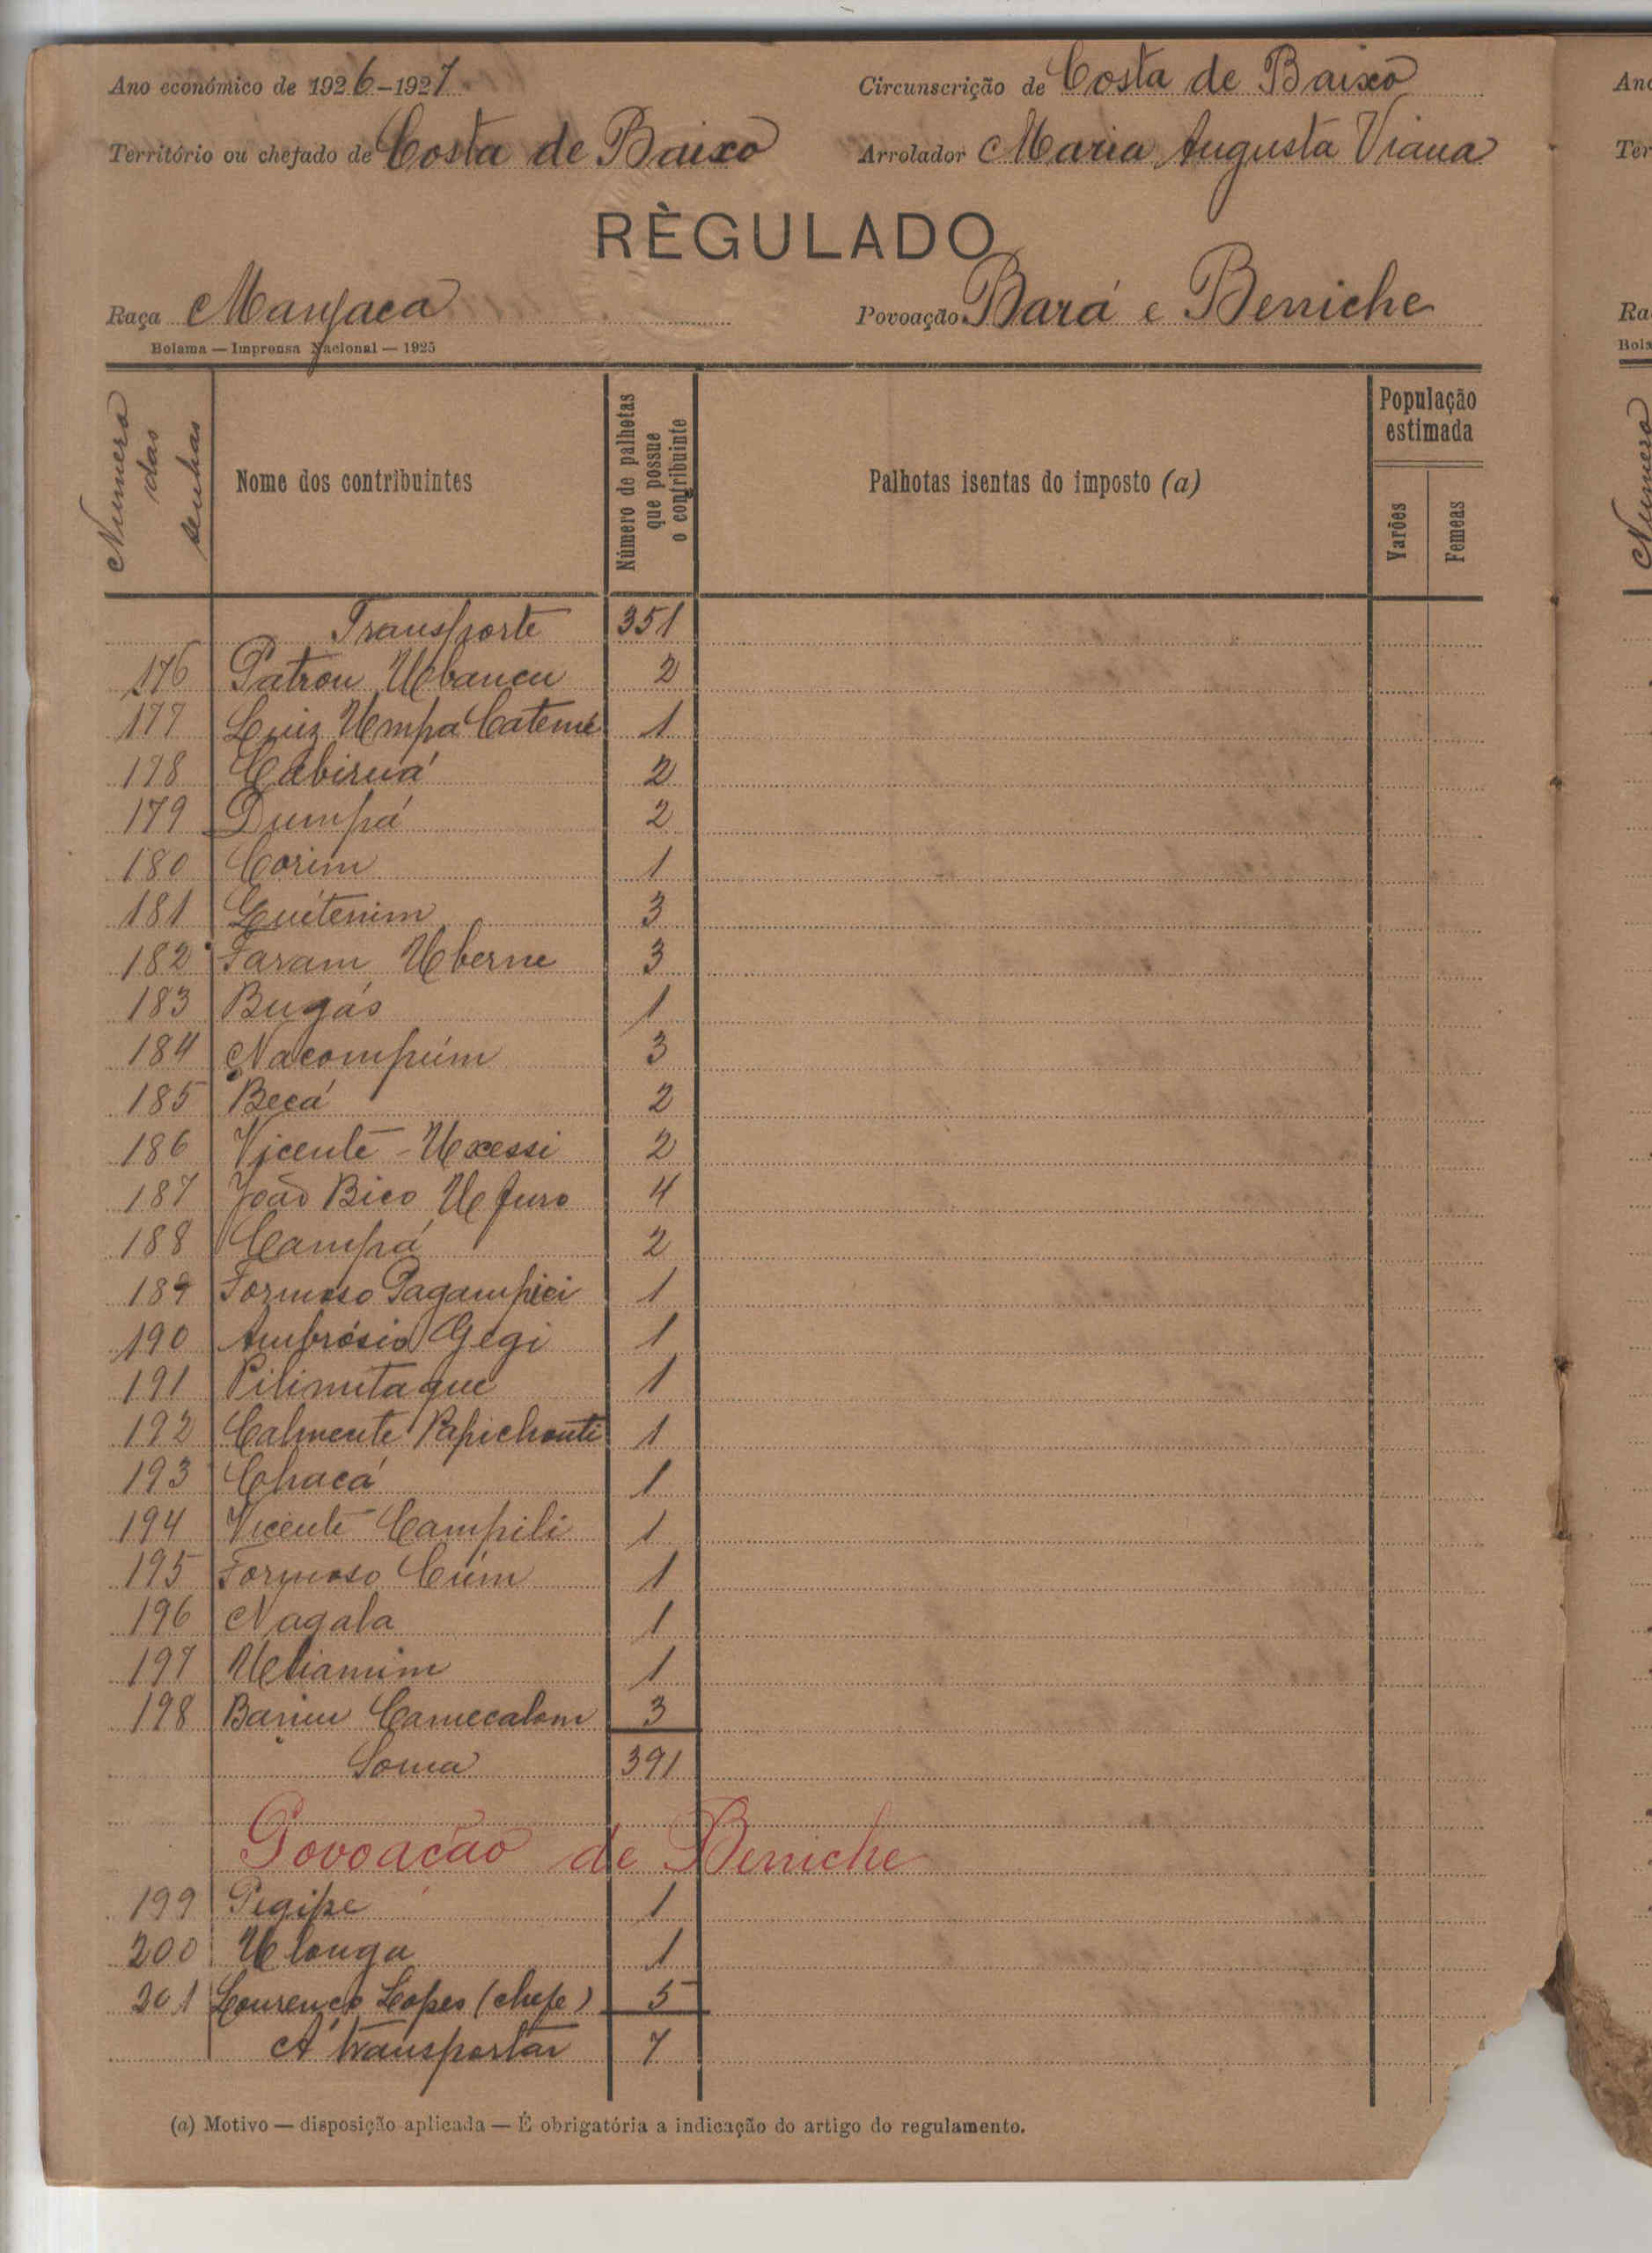 Ano económico de 1926-1927 Circunscrição de Costa de Baixo
Território ou chefado de Costa de Baixo Arrolador Maria Augusta Viana
RÈGULADO
Raça Manjaca Povoação Bará e Beniche
Bolama — Imprensa Nacional — 1925
Numero das senhas Nome dos contribuintes Número de palhotas que possue o contribuinte Palhotas isentas do imposto (a) População estimada Varões Femeas
Transporte 351
176 Patron Ubancu 2
177 Luiz Umpá Catemé 1
178 Cabiruá 2
179 Dumpá 2
180 Corim 1
181 Guétenim 3
182 Faram Uberne 3
183 Bugás 1
184 Nacompúm 3
185 Becá 2
186 Vicente - Uxessi 2
187 João Bico U furo 4
188 Campá 2
189 Formoso Pagampici 1
190 Ambrósio Gegi 1
191 Pilimitaque 1
192 Calmente Papichonti 1
193 Chacá 1
194 Vicente Campili 1
195 Formoso Cúm 1
196 Nagala 1
197 Uliamim 1
198 Baniu Camecalom 3
Soma 391
Povoação de Beniche
199 Pegipe 1
200 Ulonga 1
201 Lourenço Lopes (chefe) 5
A transportar 7
(a) Motivo — disposição aplicada — É obrigatória a indicação do artigo do regulamento.
Ano
Ter
Ra
Bola
Numero